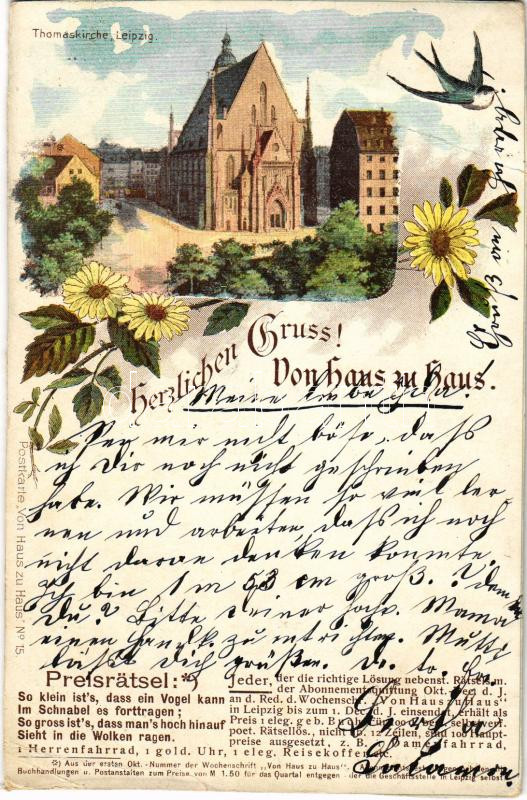 Thomaskirche, Leipzig.
Herzlichen Gruss!
Von Haus zu Haus.
Meine liebe
Sey mir nicht böse, daß
ich Dir noch nicht geschrieben
habe. Wir müssen so viel ler-
nen und arbeiten, daß ich noch
nicht daran denken konnte.
Ich bin 1 m 53 cm groß.
Du? Bitte Deiner Mama
einen
läßt Dich grüßen.
Postkarte „Von Haus zu Haus" No 15.
Preisrätsel:*)
So klein ist's, dass ein Vogel kann
Im Schnabel es forttragen;
So gross ist's, dass man's hoch hinauf
Sieht in die Wolken ragen.
Jeder, der die richtige Lösung nebenst. Rätsels m.
der Abonnementsquittung Okt. d. J.
an d. Red. d. Wochenschr. „Von Haus zu Haus"
in Leipzig bis zum 1. Dez. d. J. einsendet, erhält als
Preis 1 eleg. geb.
poet. Rätsellös., nicht üb. 12 Zeilen, sind 100 Haupt-
preise ausgesetzt, z. B. 1 Damenfahrrad,
1 Herrenfahrrad, 1 gold. Uhr, 1 eleg. Reisekoffer
*) Aus der ersten Okt.-Nummer der Wochenschrift „Von Haus zu Haus".
Buchhandlungen u. Postanstalten zum Preise von M 1.50 für das Quartal entgegen der die Geschäftsstelle in Leipzig selbst